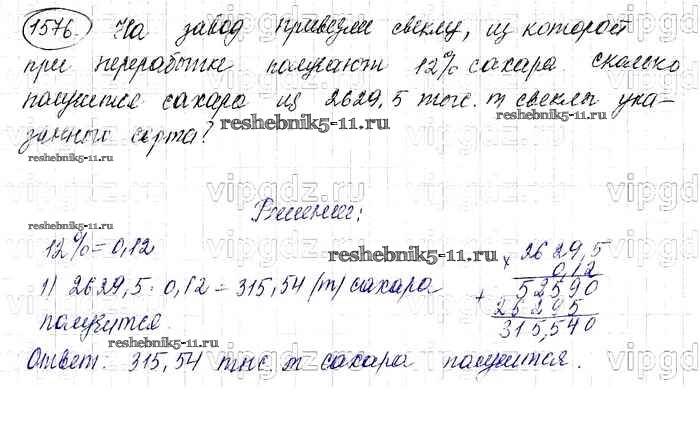 1576. На завод привезли свеклу, из которой
при переработке получают 12% сахара. Сколько
получится сахара из 2629,5 тыс. т свеклы ука-
занного сорта?
reshebnik5-11.ru
reshebnik5-11.ru
vipgdz.ru vipgdz.ru vipgdz
Решение:
reshebnik5-11.ru
12% = 0,12
reshebnik5-11.ru
1) 2629,5 · 0,12 = 315,54 (т) сахара
получится.
× 2629,5
0,12
+ 52590
26295
315,540
reshebnik5-11.ru
Ответ: 315,54 тыс. т сахара получится.